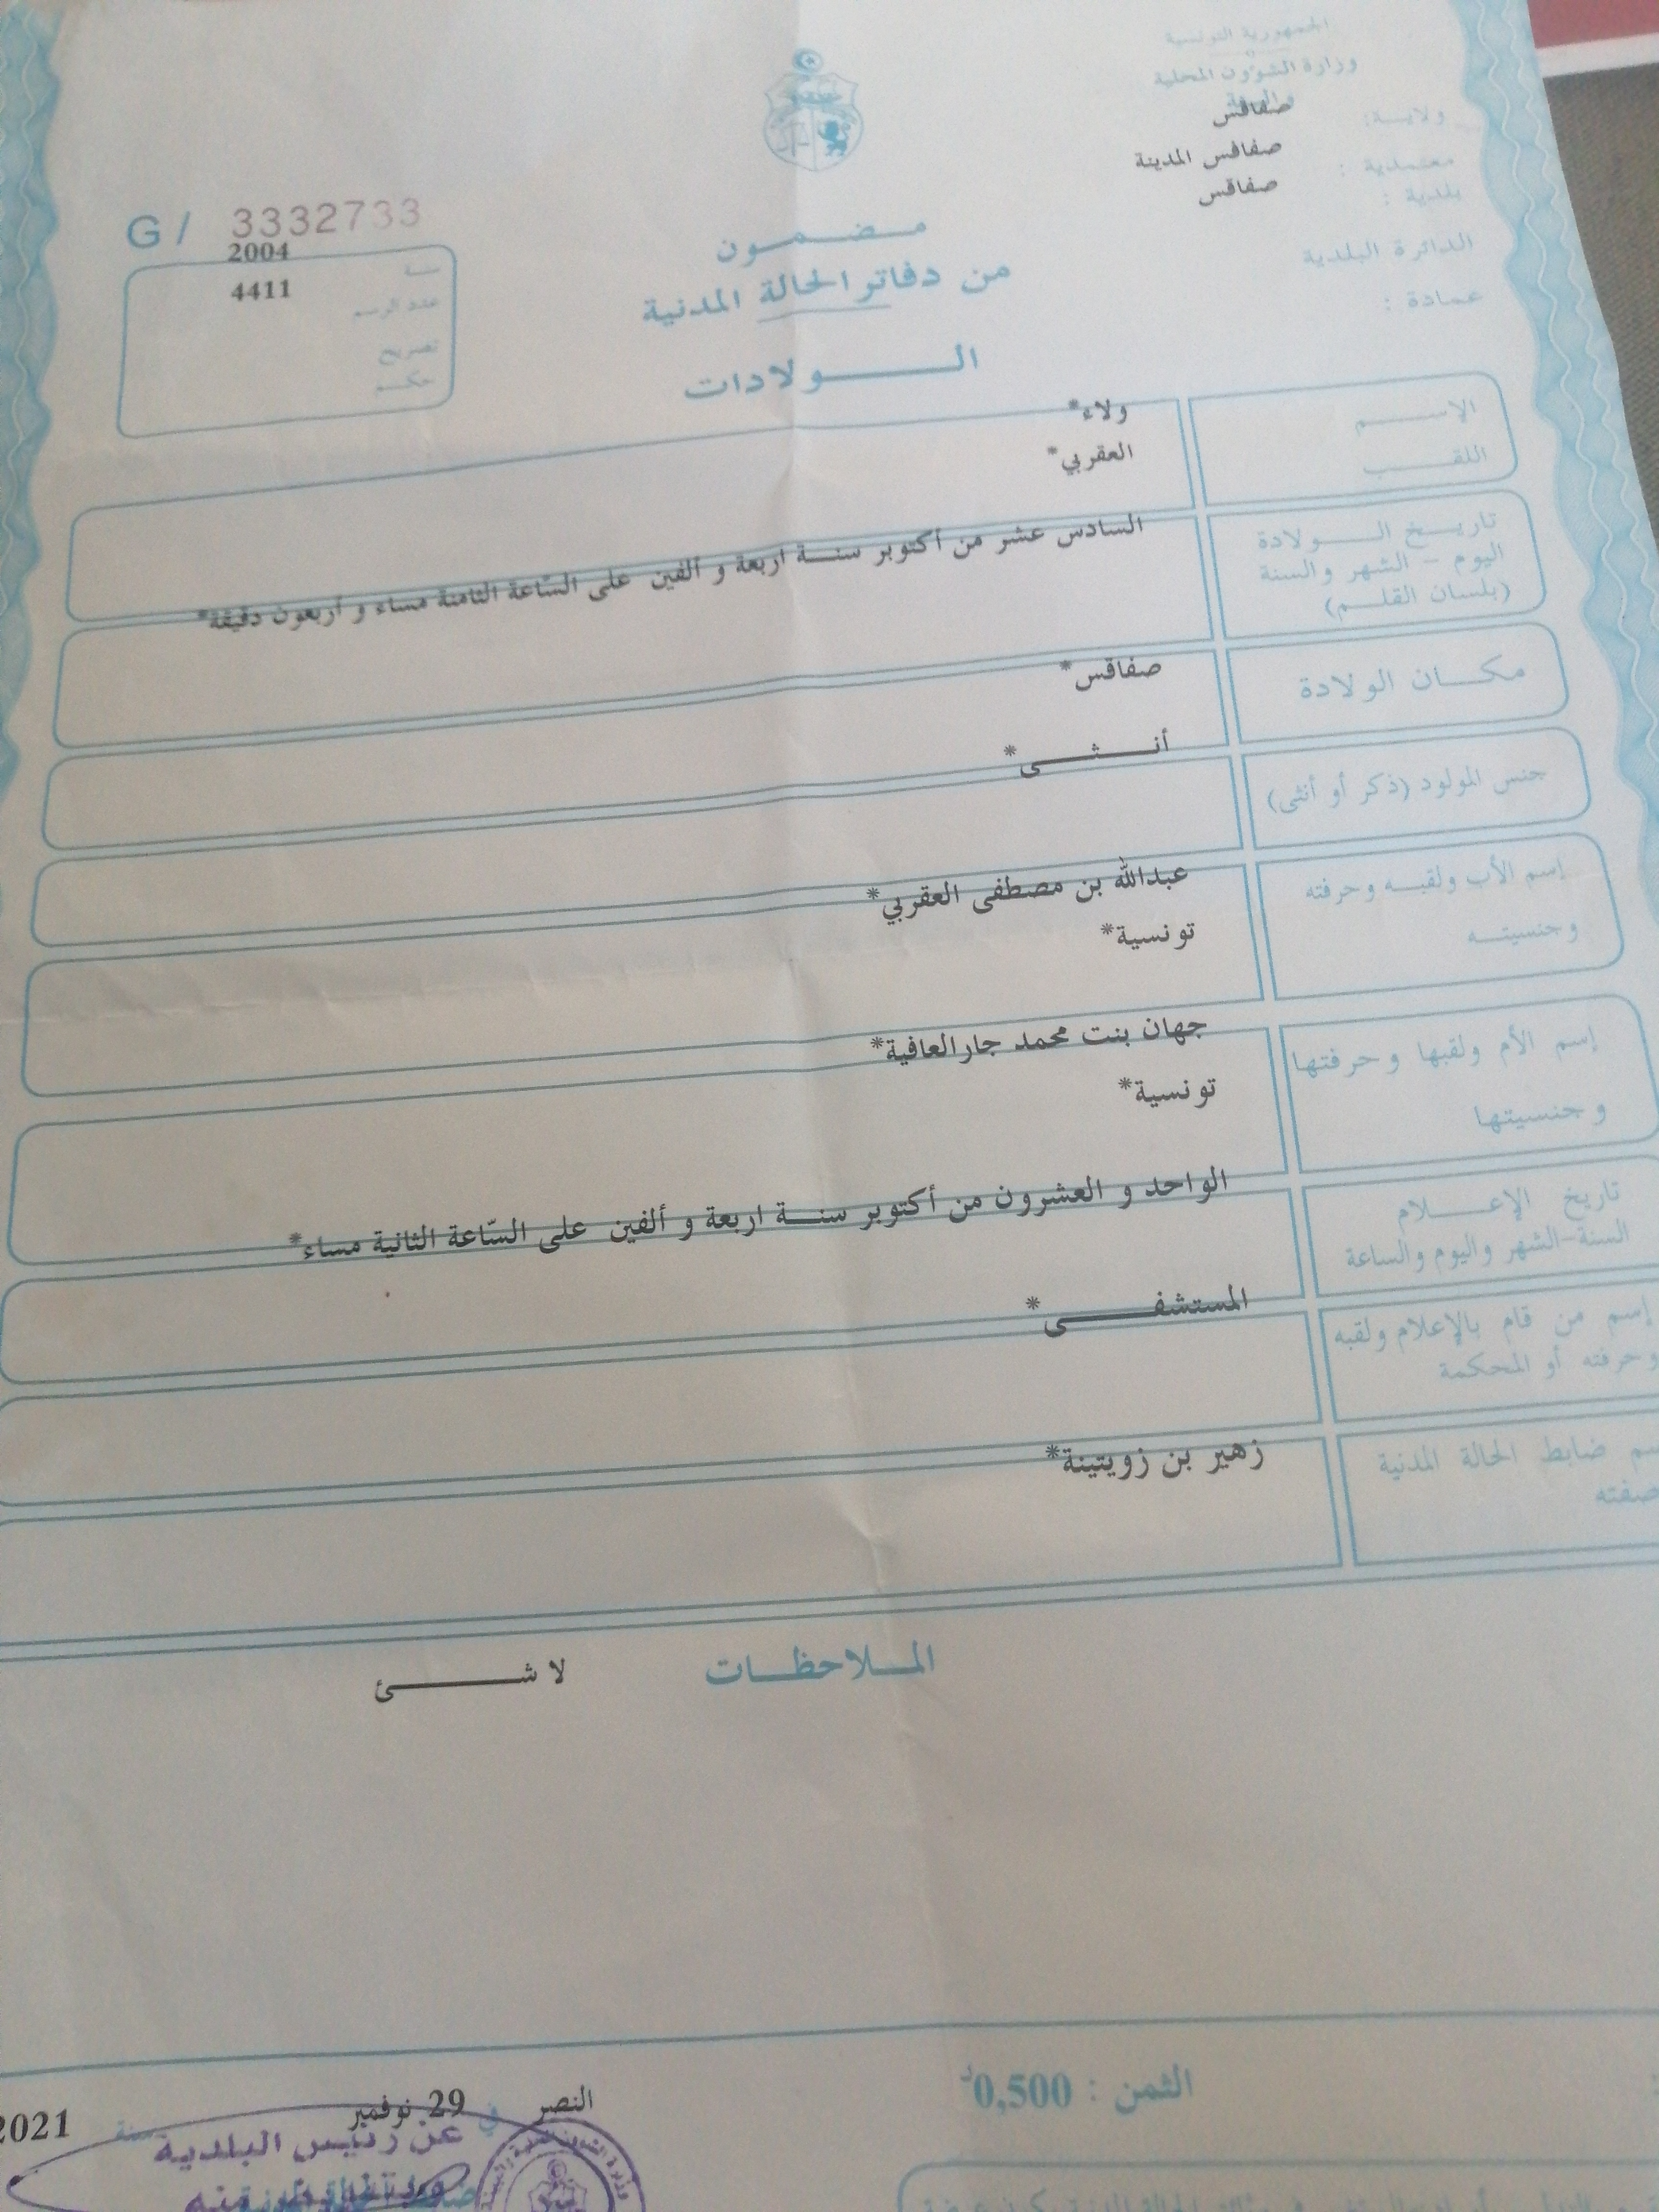 الجمهورية التونسية
وزارة الشؤون المحلية
والبيئة
ولاية: صفاقس
معتمدية : صفاقس المدينة
بلدية : صفاقس
الدائرة البلدية
عمادة :
G / 3332733
سنة 2004
عدد الرسم 4411
تصريح
حكم
مضمون
من دفاتر الحالة المدنية
الولادات
الإسم ولاء*
اللقب العقربي*
تاريخ الولادة
اليوم - الشهر والسنة
(بلسان القلم)
السادس عشر من أكتوبر سنة اربعة و ألفين على السّاعة الثامنة مساء و أربعون دقيقة*
مكان الولادة صفاقس*
جنس المولود (ذكر أو أنثى) أنثى*
إسم الأب ولقبه وحرفته عبدالله بن مصطفى العقربي*
وجنسيته تونسية*
إسم الأم ولقبها وحرفتها جهان بنت محمد جارالعافية*
وجنسيتها تونسية*
تاريخ الإعلام الواحد و العشرون من أكتوبر سنة اربعة و ألفين على السّاعة الثانية مساء*
السنة-الشهر واليوم والساعة
إسم من قام بالإعلام ولقبه المستشفى*
وحرفته أو المحكمة
ضابط الحالة المدنية زهير بن زويتينة*
صفته
الملاحظات لا شئ
الثمن : 0,500د
النصر في 29 نوفمبر سنة 2021
عن رئيس البلدية